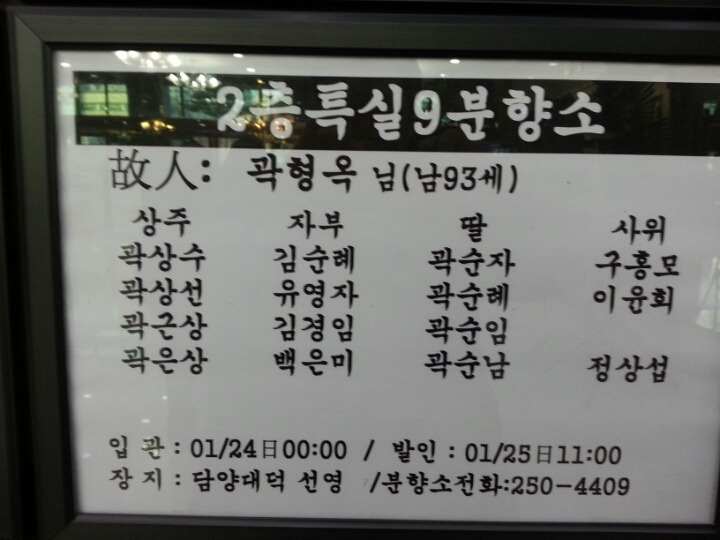 2층특실9분향소
故人: 곽형옥 님(남93세)
상주 자부 딸 사위
곽상수 김순례 곽순자 구홍모
곽상선 유영자 곽순례 이윤희
곽근상 김경임 곽순임
곽은상 백은미 곽순남 정상섭
입 관 : 01/24日00:00 / 발인 : 01/25日11:00
장 지 : 담양대덕 선영 /분향소전화:250-4409